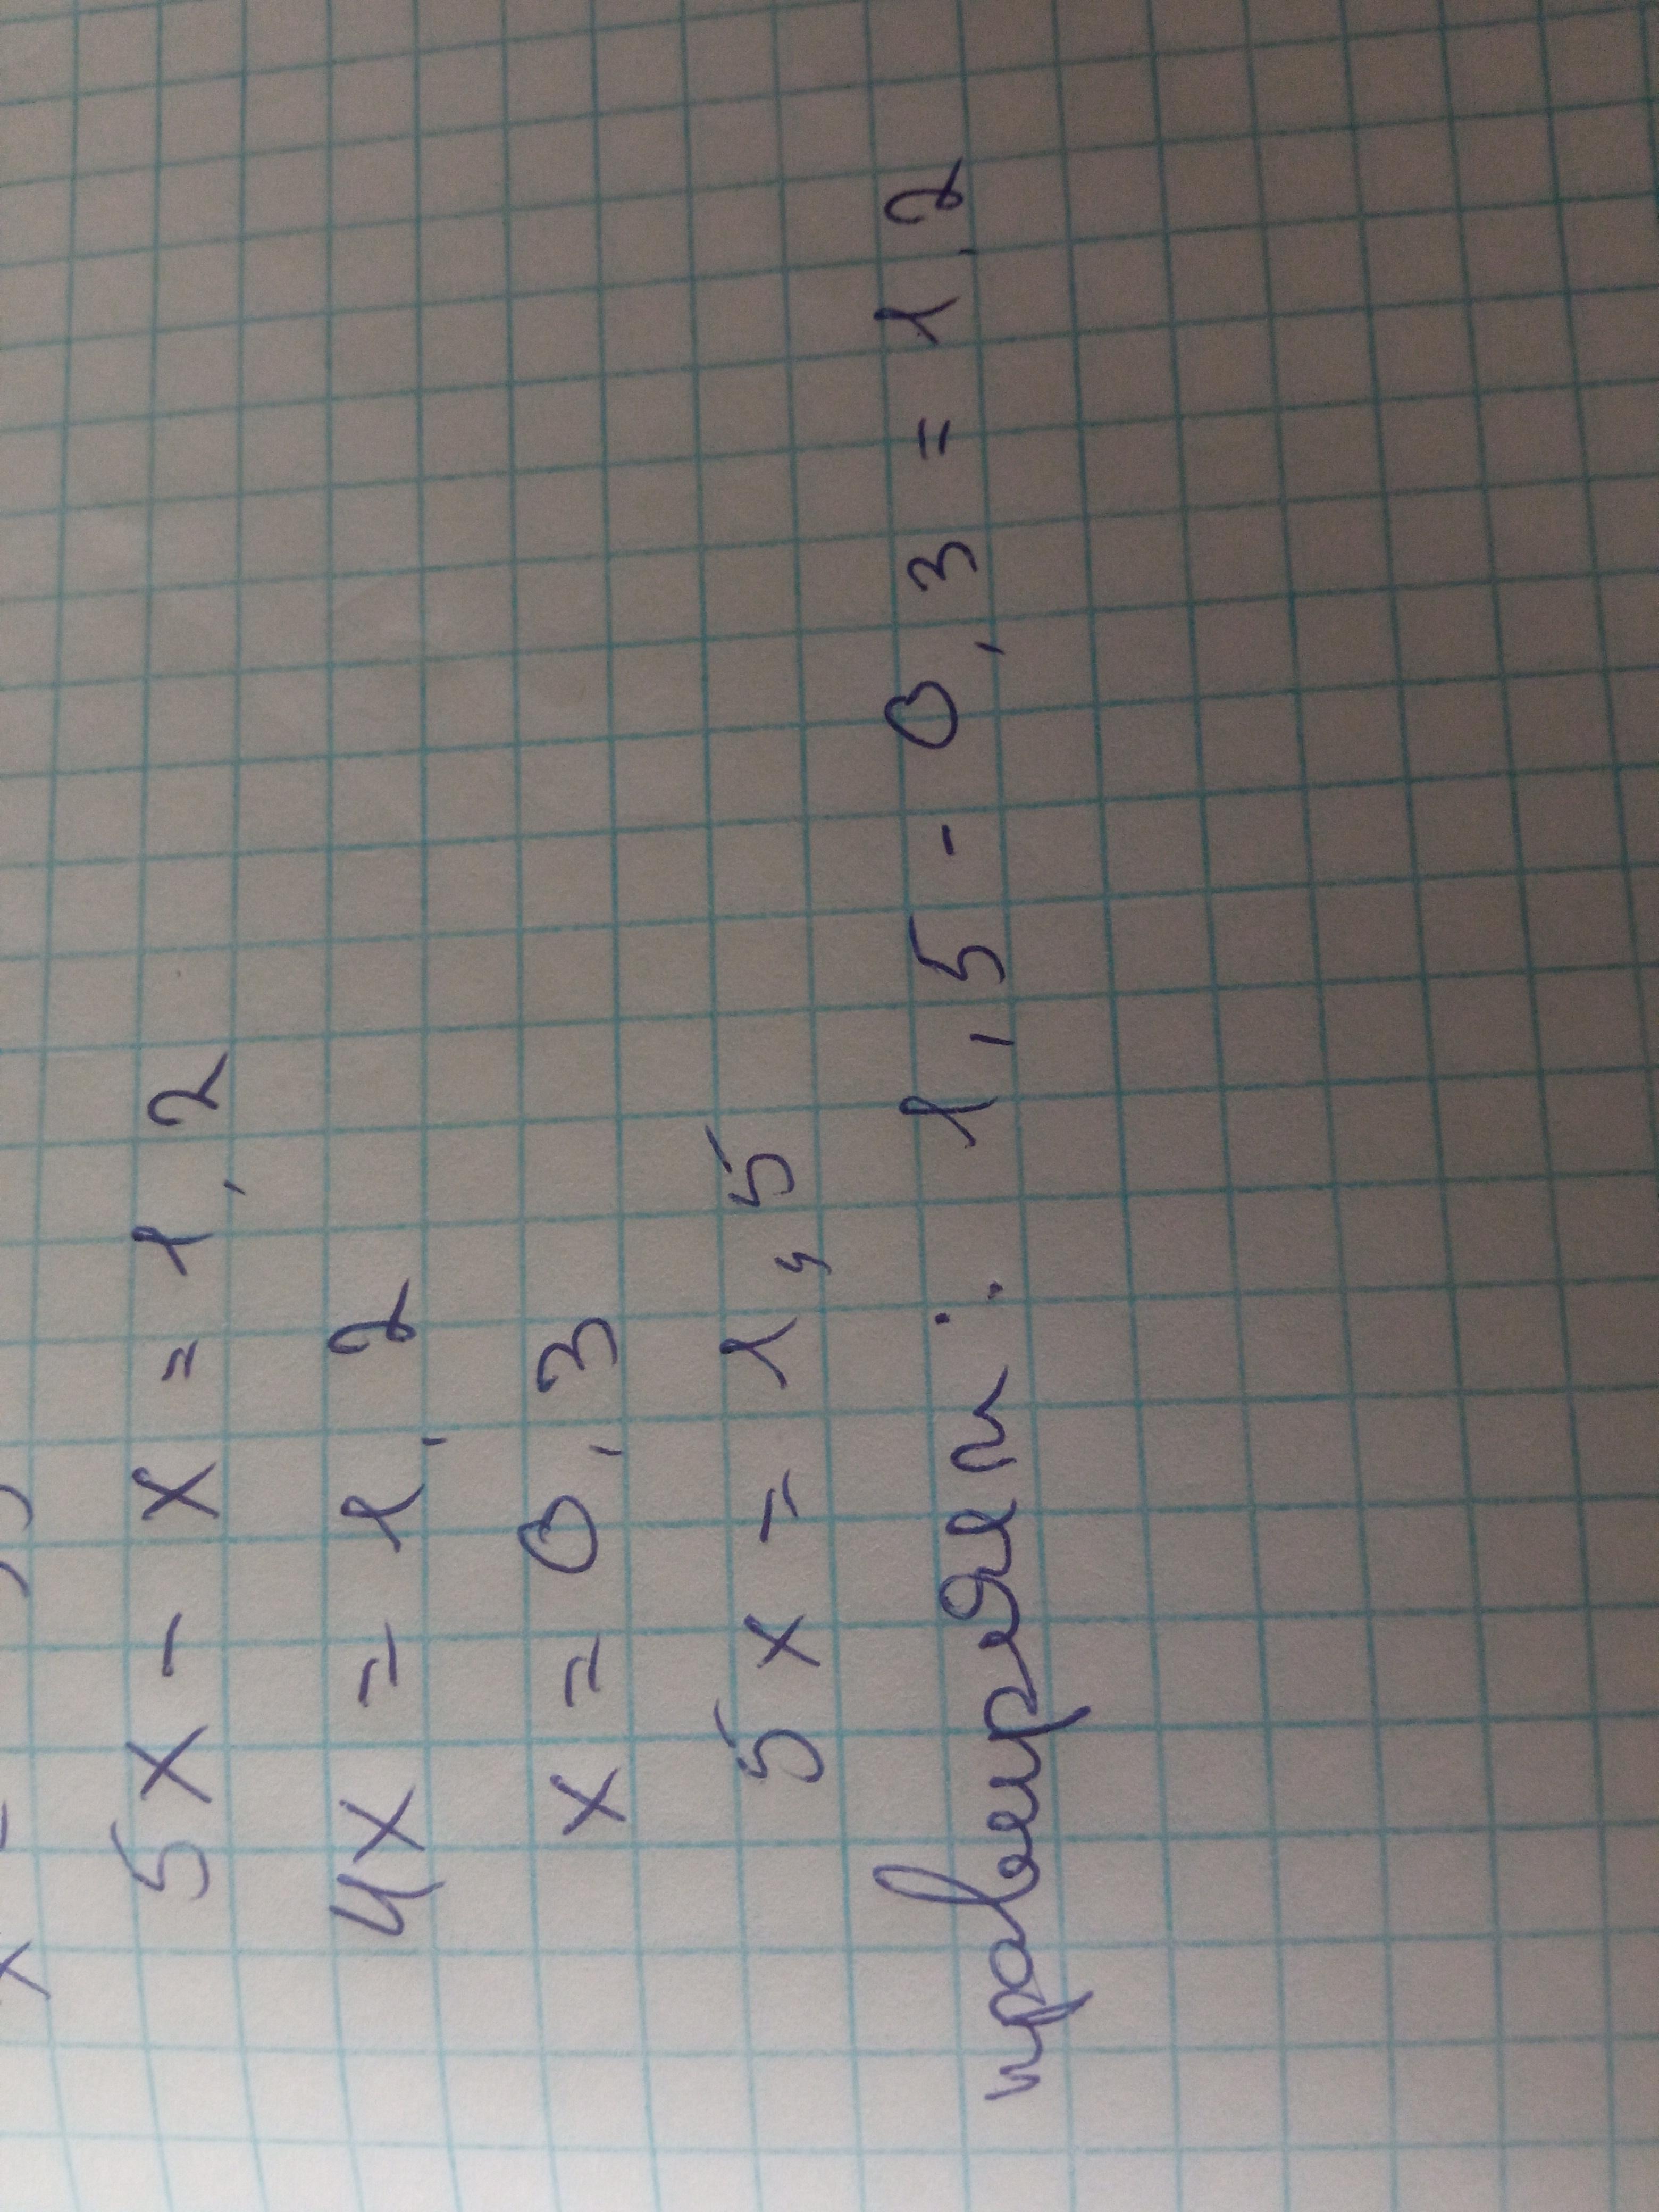 5x - x = 1,2
4x = 1,2
x = 0,3
5x = 1,5
проверяем: 1,5 - 0,3 = 1,2